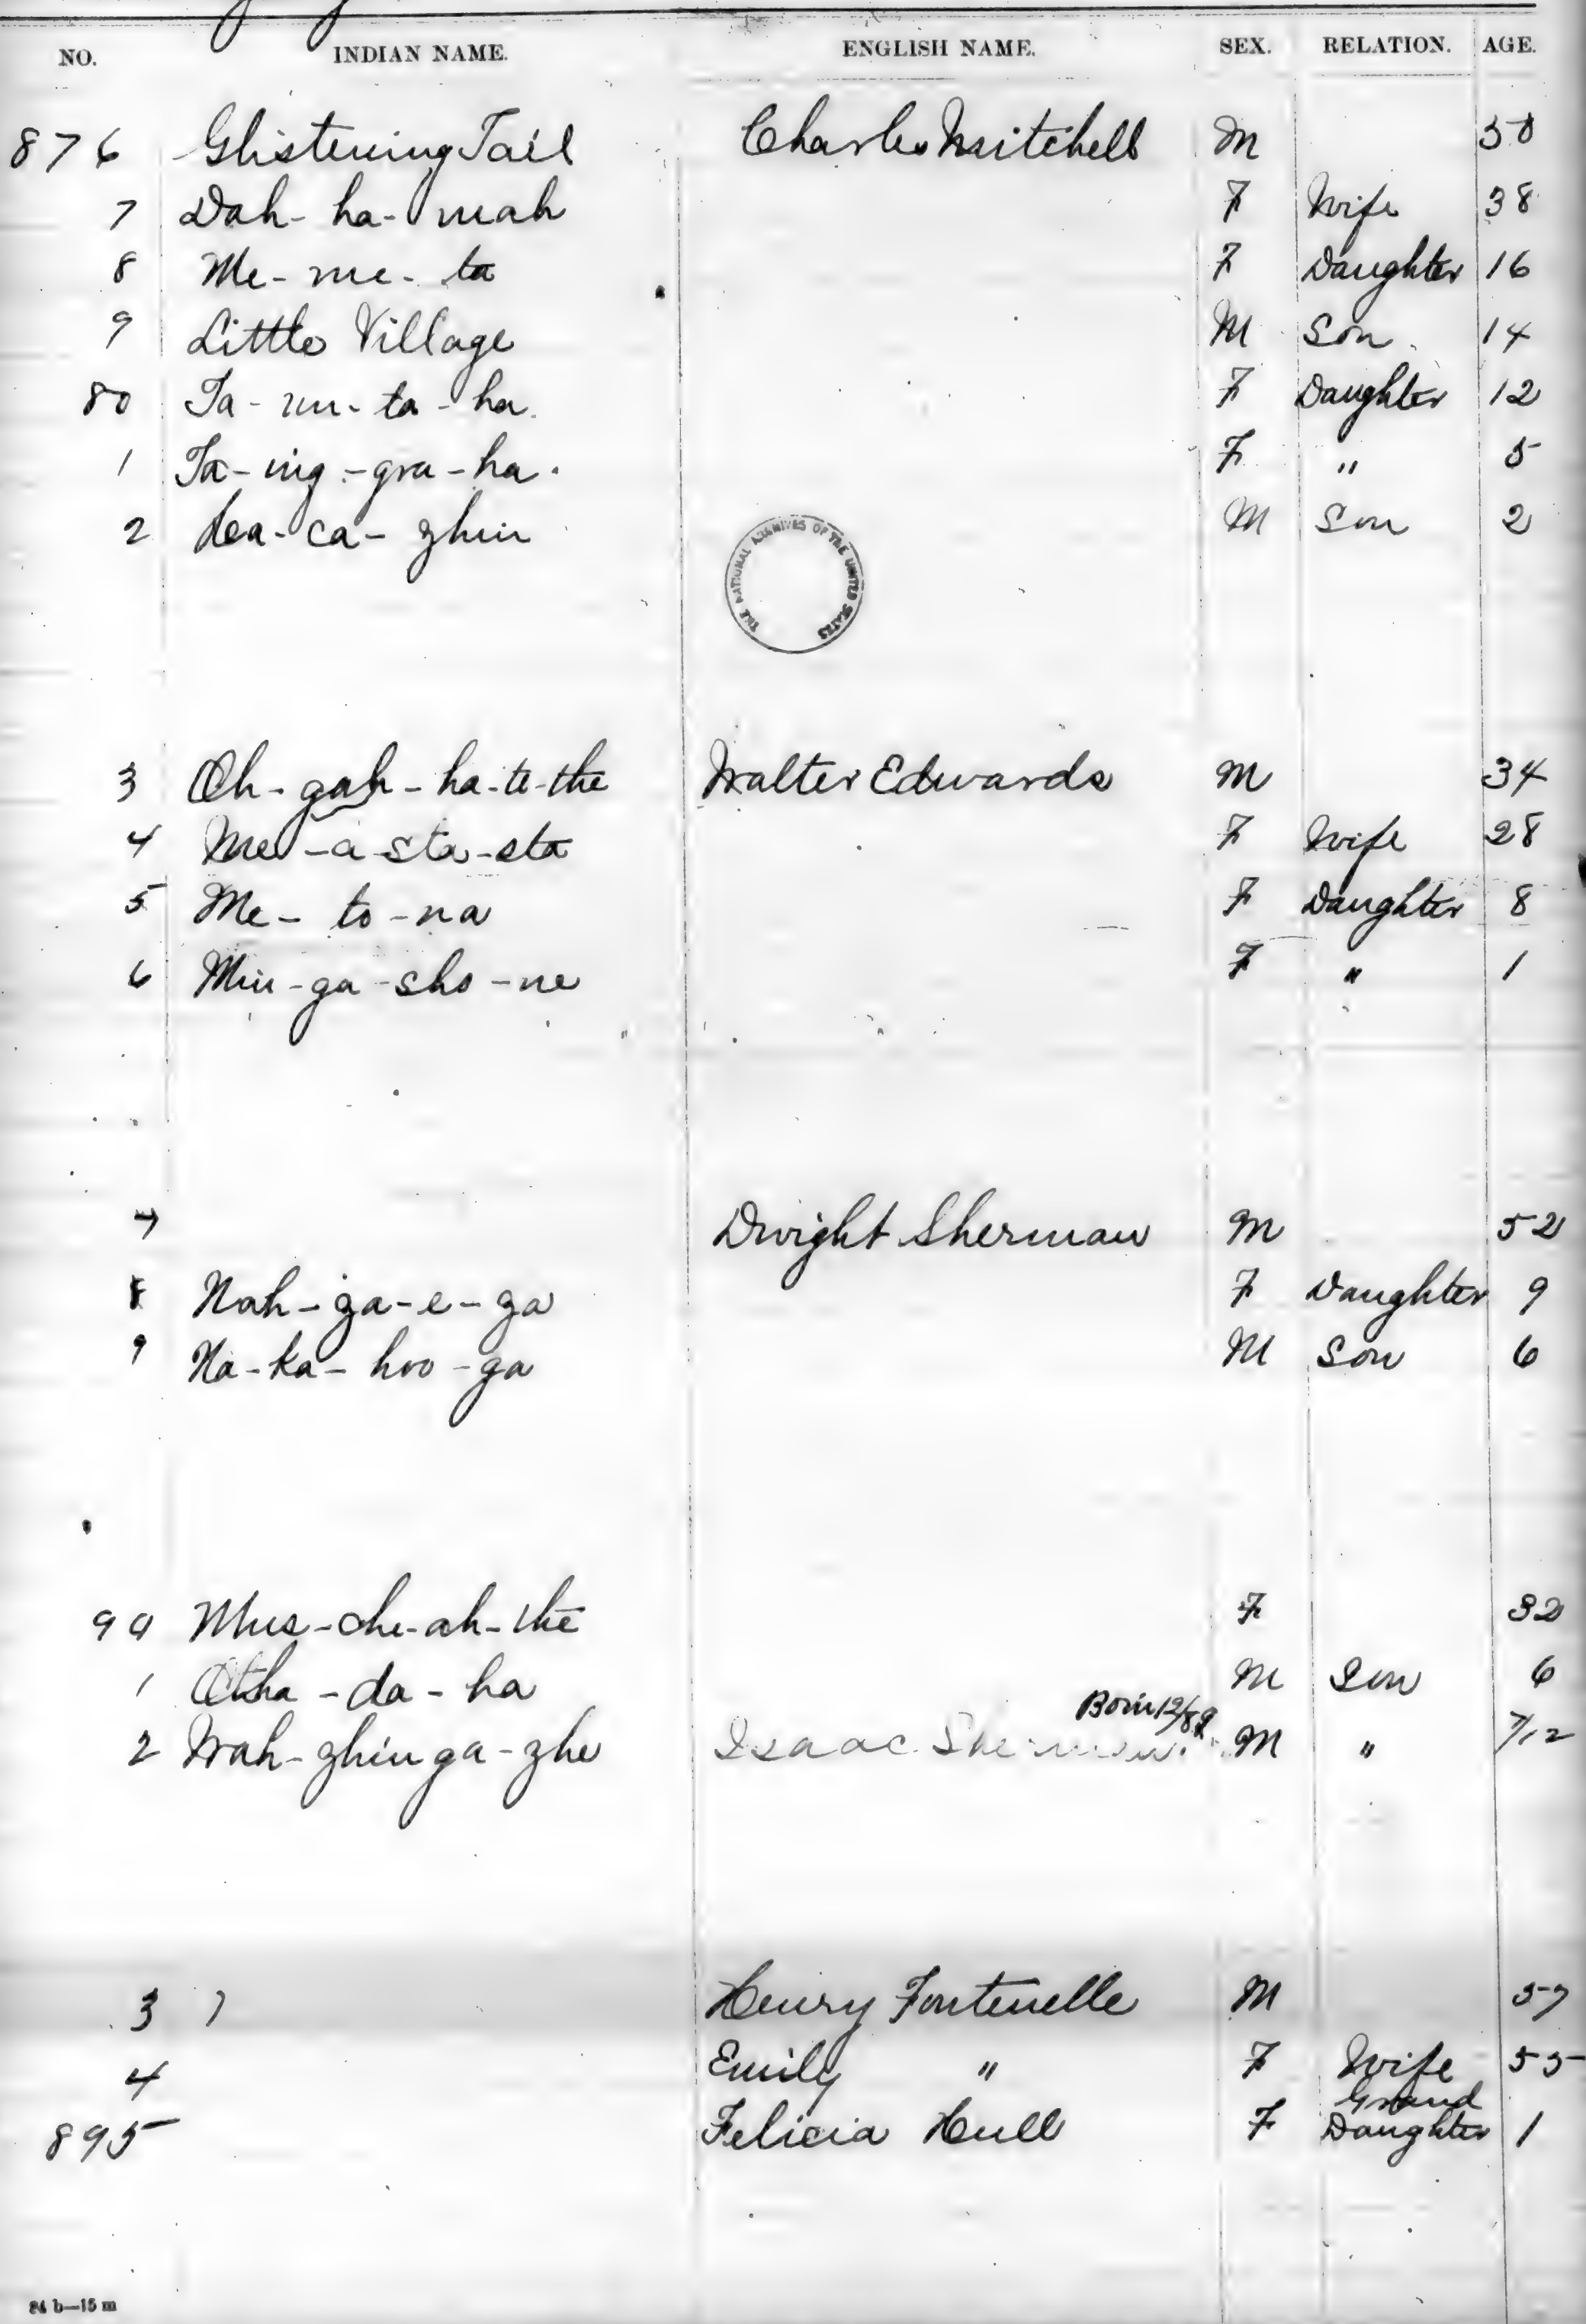 NO. INDIAN NAME. ENGLISH NAME. SEX. RELATION. AGE.
876 Glistening Tail Charles Mitchell M 50
7 Dah-ha-mah F Wife 38
8 Me-me-ta F Daughter 16
9 Little Village M Son 14
80 Ta-un-ta-ha. F Daughter 12
1 Ta-ing-gra-ha. F " 5
2 Hea-ca-zhin M Son 2
THE NATIONAL ARCHIVES OF THE UNITED STATES
3 Oh-gah-ha-te-the Walter Edwards M 34
4 Me-a-sta-sta F Wife 28
5 Me-to-na F Daughter 8
6 Min-ga-sho-ne F " 1
7 Dwight Sherman M 52
8 Nah-ga-e-ga F Daughter 9
9 Na-ka-hoo-ga M Son 6
90 Mus-che-ah-the F 32
1 Otha-da-ha M Son 6
Born 12/89
2 Wah-zhinga-zhe Isaac Sherman. M " 7/12
3 Henry Fontenelle M 57
4 Emily " F Wife 55
895 Felicia Hull F Grand Daughter 1
84 b—15 m